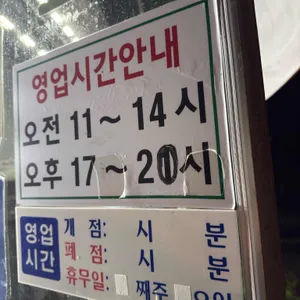 영업시간안내
오전 11~14시
오후 17~20시
영업시간
개 점: 시 분
폐 점: 시 분
휴무일: 째주